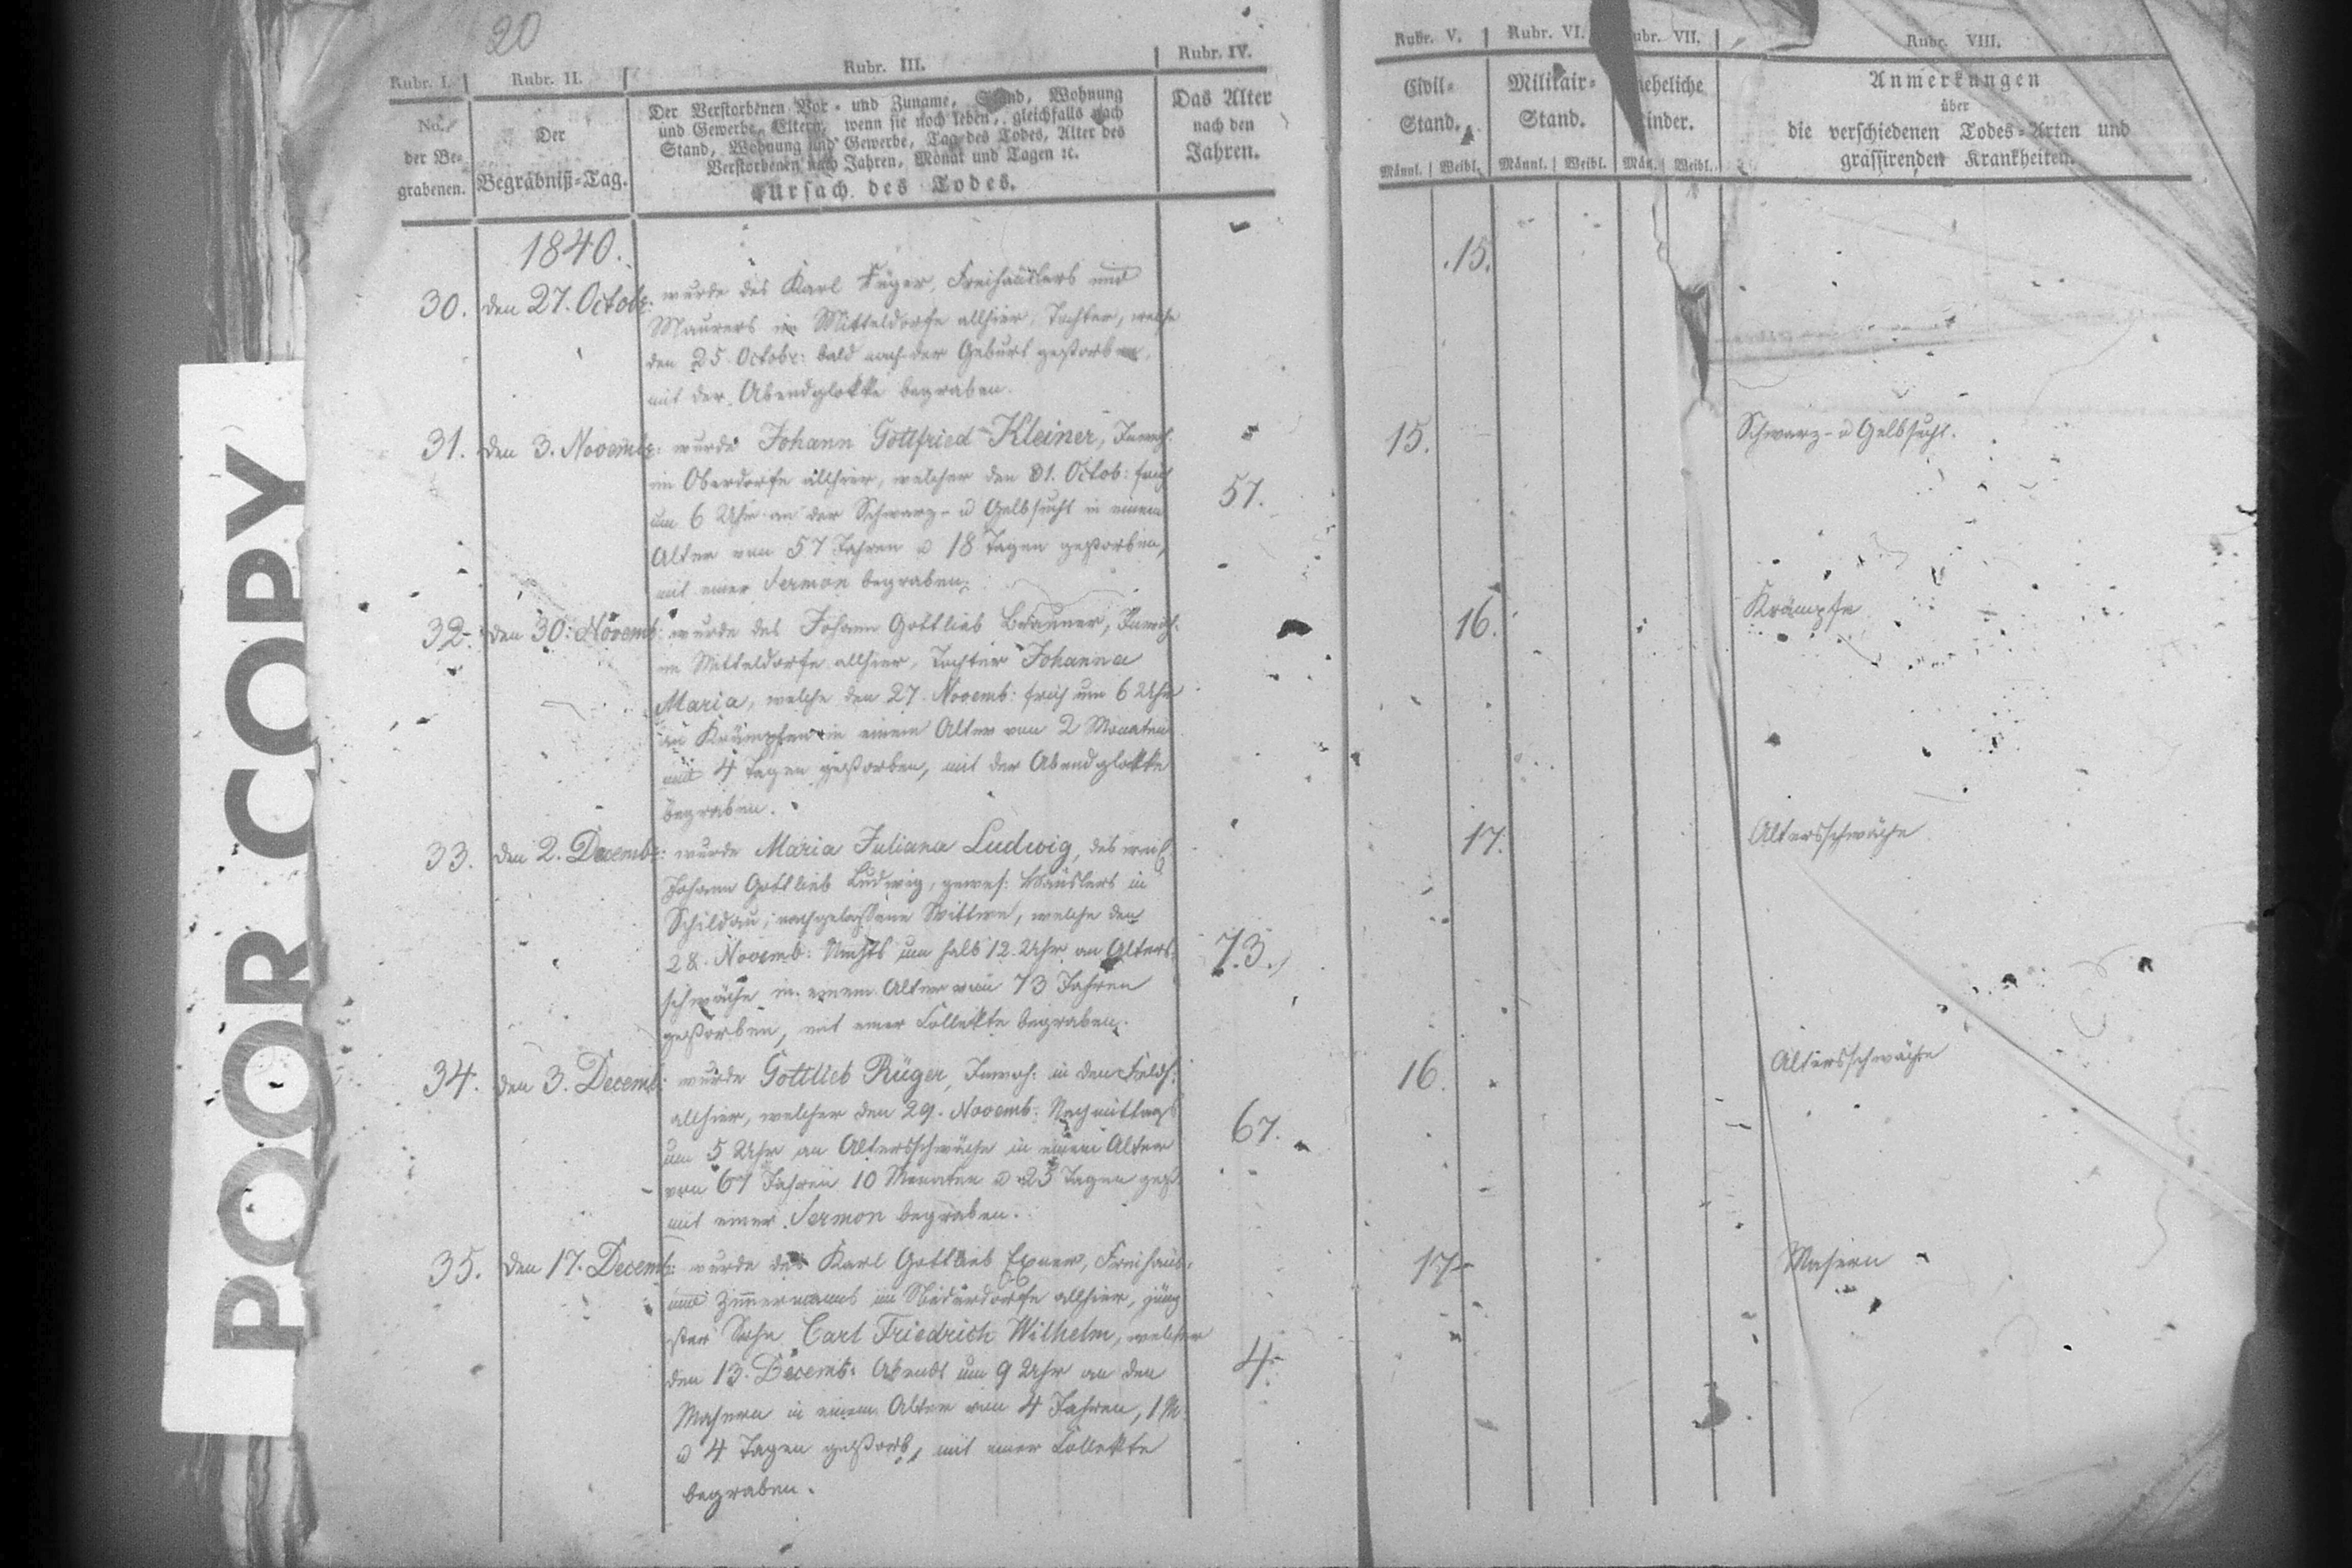 20
Rubr. I. Rubr. II. Rubr. III. Rubr. IV. Rubr. V. Rubr. VI. ubr. VII. Rubr. VIII.
No.
der Be-
grabenen.
Der
Begräbniß-Tag.
Der Verstorbenen Vor- und Zuname, Stand, Wohnung
und Gewerbe, Eltern, wenn sie noch leben, gleichfalls nach
Stand, Wohnung und Gewerbe, Tag des Todes, Alter des
Verstorbenen nach Jahren, Monat und Tagen ꝛc.
Ursach des Todes.
Das Alter
nach den
Jahren.
Civil-
Stand.
Männl. | Weibl.
Militair-
Stand.
Männl. | Weibl.
neheliche
inder.
Män. Weibl.
Anmerkungen
über
die verschiedenen Todes-Arten und
grassirenden Krankheiten.
1840.
30. den 27. Octobr: wurde des Karl Füger, Freihäuslers und 15.
Maurers im Mitteldorfe allhier, Tochter, welche
den 25. Octobr: bald nach der Geburt gestorben,
mit der Abendglokke begraben.
31. den 3. Novembr: wurde Johann Gottfried Kleiner, Inwoh. 15. Schwarz- u Gelbsucht.
im Oberdorfe allhier, welcher den 31. Octob: früh
um 6 Uhr an der Schwarz- u Gelbsucht in einem 57.
Alter von 57 Jahren u 18 Tagen gestorben,
mit einer Sermon begraben.
32. den 30. Novemb: wurde des Johann Gottlieb Brauner, Inwoh. 16. Krämpfe
im Mitteldorfe allhier, Tochter Johanna
Maria, welche den 27. Novemb: früh um 6 Uhr
an Krämpfen in einem Alter von 2 Monaten
und 4 Tagen gestorben, mit der Abendglokke
begraben.
33. den 2. Decembr: wurde Maria Juliana Ludwig, des weil 17. Altersschwäche
Johann Gottlieb Ludwig, gewes: Häuslers in
Schildau, nachgelassene Wittwe, welche den
28. Novemb: Nachts um halb 12. Uhr an Alters- 73.
schwäche in einem Alter von 73 Jahren
gestorben, mit einer Collekte begraben.
34. den 3. Decemb: wurde Gottlieb Rüger, Inwoh: in den Feldh: 16. Altersschwäche
allhier, welcher den 29. Novemb: Nachmittags
um 5 Uhr an Altersschwäche in einem Alter 67.
von 67 Jahren 10 Monaten u 23 Tagen gest.
mit einer Sermon begraben.
35. den 17. Decemb: wurde des Karl Gottlieb Exner, Freihäus. 17. Masern
und Zimmermanns im Niederdorfe allhier, jüng
ster Sohn Carl Friedrich Wilhelm, welcher
den 13. Decemb: Abends um 9 Uhr an den 4.
Masern in einem Alter von 4 Jahren, 1 M.
u 4 Tagen gestorb, mit einer Collekte
begraben.
POOR COPY